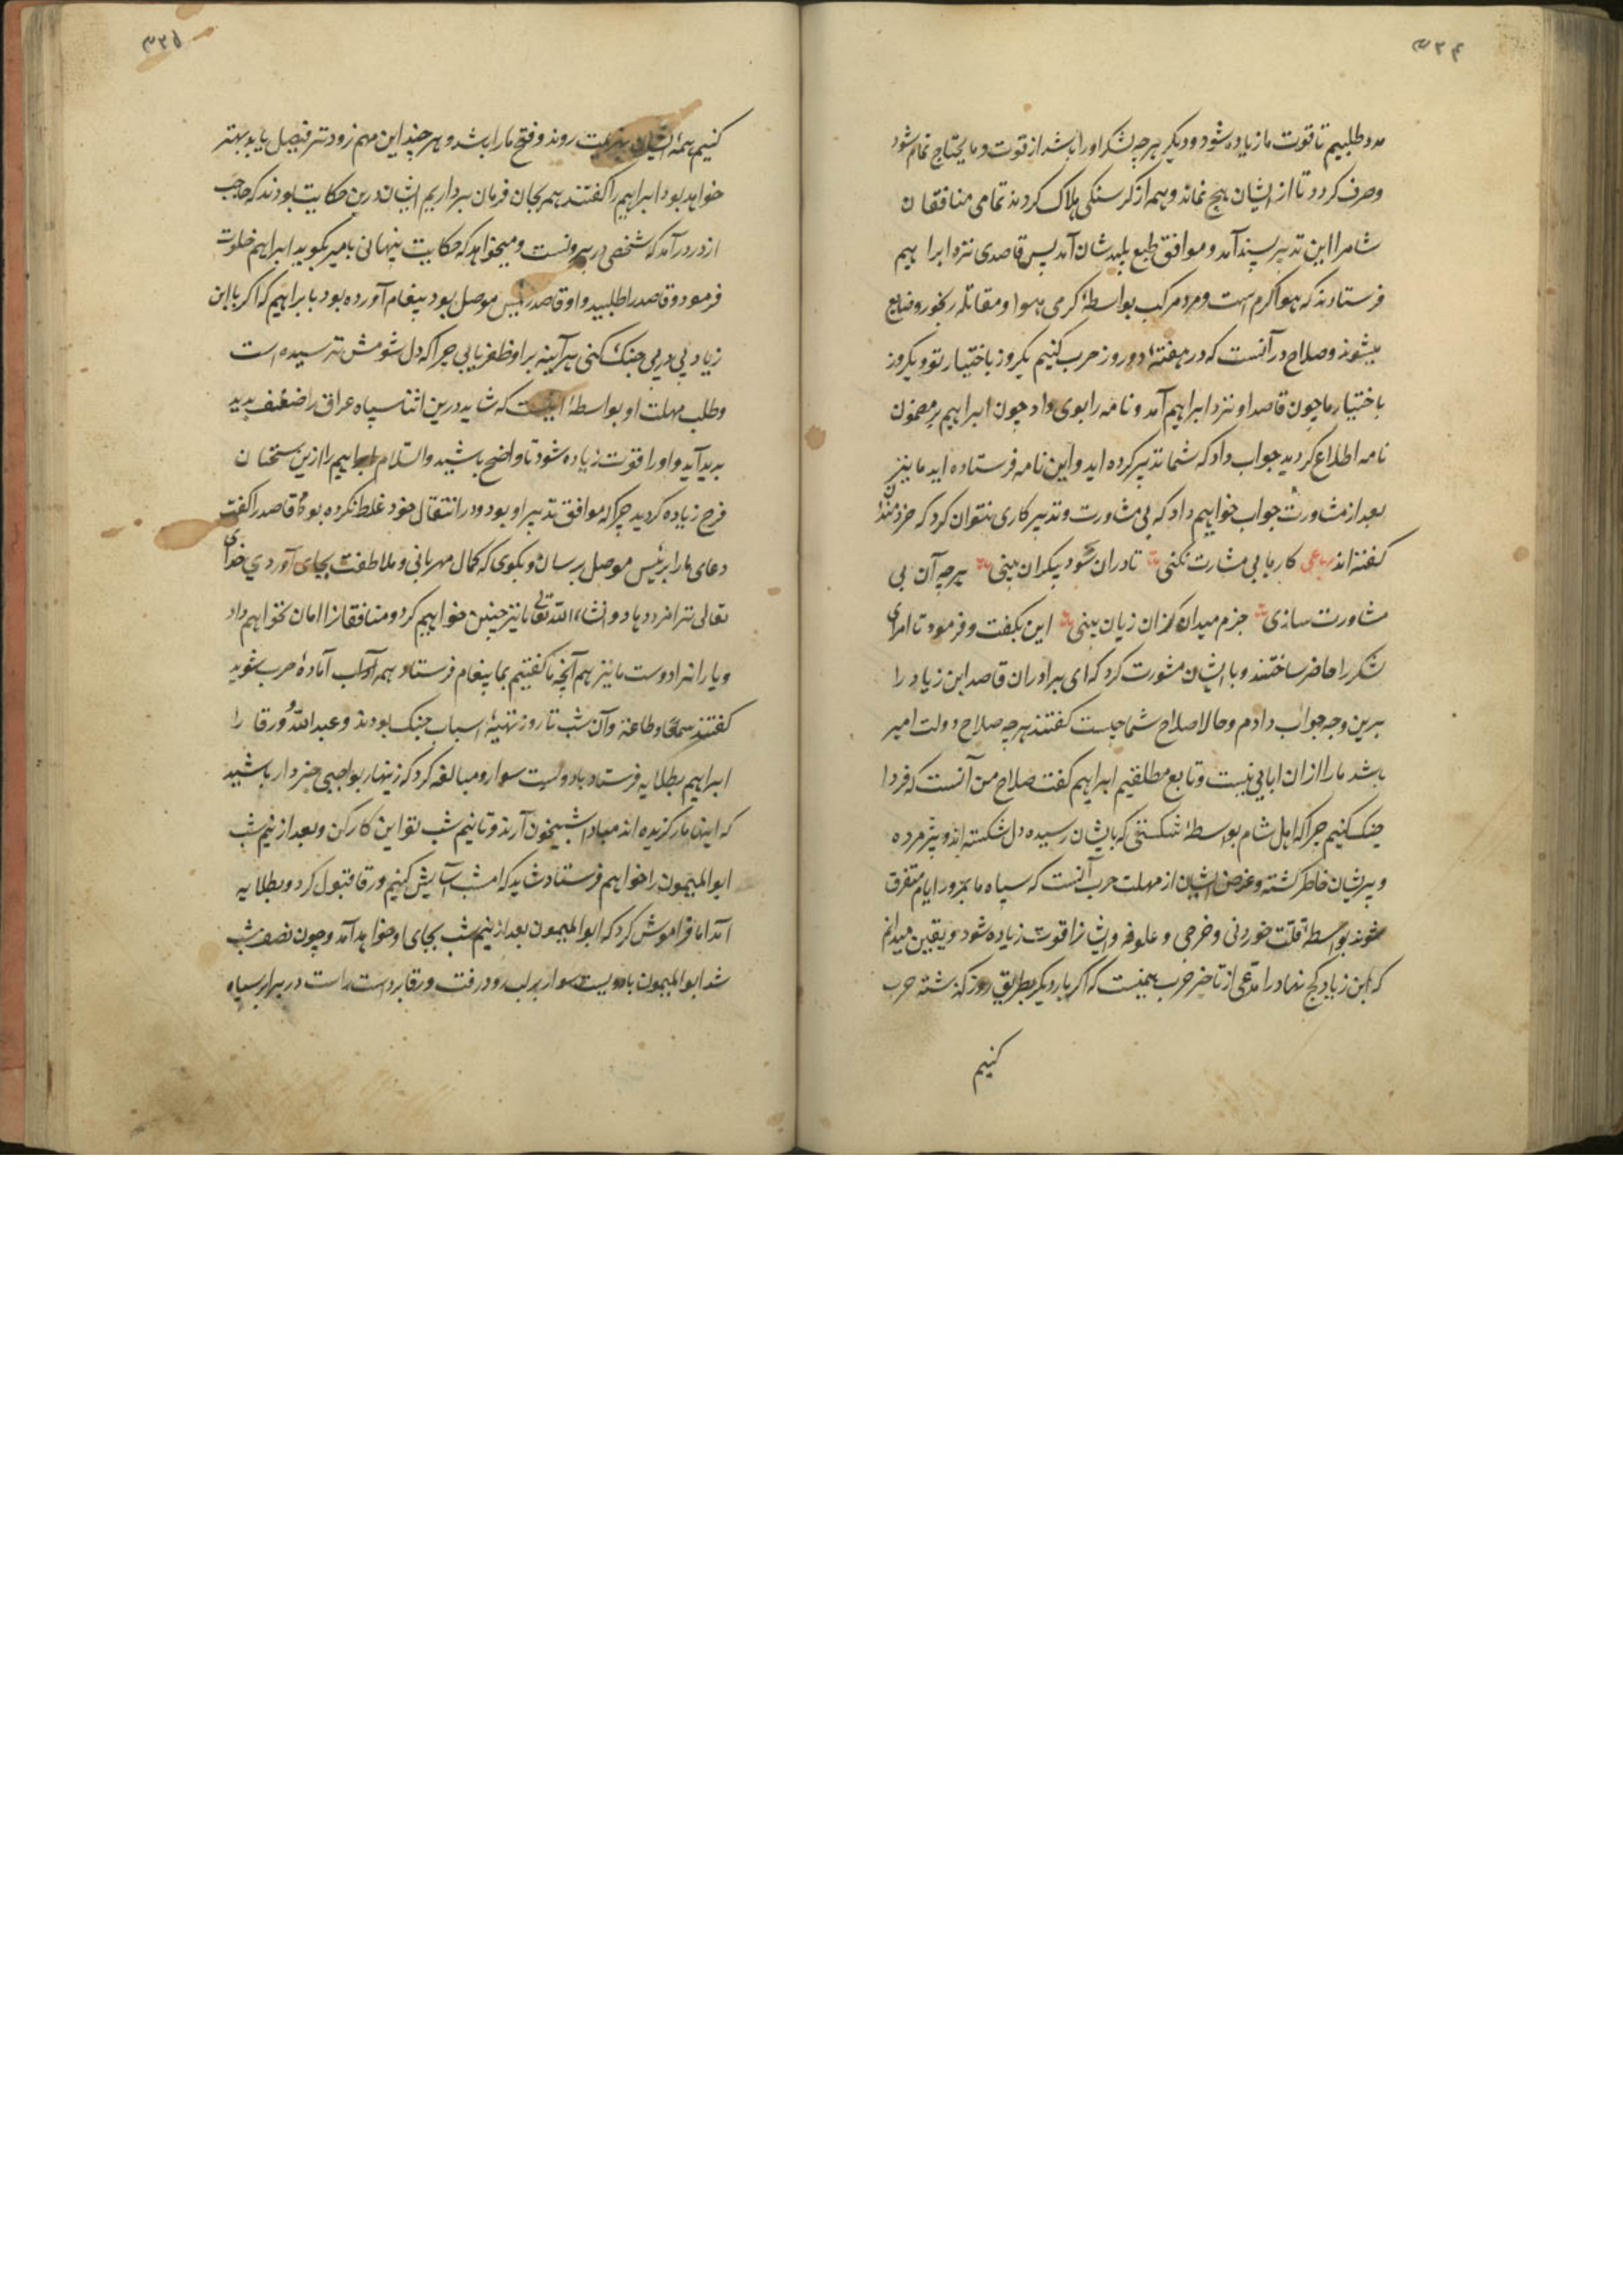 ۳۳۴
مدد طلبیم تا قوت ما زیاده شود و دیکر هرچه لشکر او را باشد از قوت و ما یحتاج تمام شود
و صرف کردد تا از ایشان هیچ نماند و همه از کرسنکی هلاک کردند تمامی منافقان
شام را این تدبیر پسند آمد و موافق طبع پلیدشان آمد پس قاصدی نزد ابراهیم
فرستادند که هوا کرم است و مرد مرکب بواسطهٔ کرمی هوا و مقاتله رنجور و ضایع
میشوند و صلاح در آنست که در هفتهٔ دو روز حرب کنیم یکروز باختیار تو و یکروز
باختیار ما چون قاصد او نزد ابراهیم آمد و نامه را بوی داد چون ابراهیم بر مضمون
نامه اطلاع کردید جواب داد که شما تدبیر کرده اید و این نامه فرستاده اید ما نیز
بعد از مشاورت جواب خواهیم داد که بی مشاورت و تدبیر کاری نتوان کرد که خردمندان
کفته اند رباعی کارها بی مشارت نکنی تا دران سود بیکران بینی هرچه آن بی
مشاورت سازی جزم میدان کزان زیان بینی این بکفت و فرمود تا امرای
لشکر را حاضر ساختند و با ایشان مشورت کرد که ای برادران قاصد ابن زیاد را
برین وجه جواب دادم و حالا صلاح شما چیست کفتند هرچه صلاح دولت امیر
باشد ما را از ان ابایی نیست و تابع مطلقیم ابراهیم کفت صلاح من آنست که فردا
جنک کنیم چرا که اهل شام بواسطهٔ شکستی که بایشان رسیده دل شکسته اند و پژمرده
و پریشان خاطر کشته و غرض ایشان از مهلت حرب آنست که سپاه ما بمرور ایام متفرق
شوند بواسطهٔ قلت خوردنی و خرجی و علوفه و ایشانرا قوت زیاده شود و یقین میدانم
که ابن زیاد کج نهاد را مدعی از تاخیر حرب همینست که اکر بار دیکر بطریق روز کذشته حرب
کنیم
۳۳۵
کنیم همهٔ ایشان بهزیمت روند و فتح ما را باشد و هر چند این مهم زودتر فیصل یابد بهتر
خواهد بود ابراهیم را کفتند همه بجان فرمان برداریم ایشان درین حکایت بودند که حاجب
از در درآمد که شخصی در بیرونست و میخواهد که حکایت پنهانی بامیر بکوید ابراهیم خلوت
فرمود و قاصد را طلبید و او قاصد رئیس موصل بود پیغام آورده بود بابراهیم که اکر با ابن
زیاد پی در پی جنک کنی هر آینه بر او ظفر یابی چرا که دل شومش ترسیده است
و طلب مهلت او بواسطهٔ اینست که شاید درین اثنا سپاه عراق را ضعف پدید
پدید آید و او را قوت زیاده شود تا واضح باشید والسلام ابراهیم را ازین سخنان
فرح زیاده کردید چرا که موافق تدبیر او بود و در انتقال خود غلط نکرده بود قاصد را کفت
دعای ما را برئیس موصل برسان و بکوی که کمال مهربانی و ملاطفت بجای آوردی خدای
تعالی ترا مزد دهاد و انشاء الله تعالی ما نیز چنین خواهیم کرد و منافقانرا امان نخواهیم داد
و یارانرا دوست ما نیز هم آنچه ما کفتیم بما پیغام فرستاد همه آداب آمادهٔ حرب شوید
کفتند سمعا و طاعة و آن شب تا روز تهیهٔ اسباب جنک بودند و عبدالله ورقا را
ابراهیم بطلایه فرستاد با دویست سوار و مبالغه کرد که زینهار بواجبی خبردار باشید
که اینها مار کزیده اند مبادا شبیخون آرند و تا نیم شب تو این کار کن و بعد از نیم شب
ابوالمیمون را خواهم فرستاد شاید که امشب آسایش کنیم ورقا قبول کرد و بطلایه
آمد اما فراموش کرد که ابوالمیمون بعد از نیم شب بجای او خواهد آمد و چون نصف شب
شد ابوالمیمون با دویست سوار بر لب رود رفت ورقا بر دست راست در برابر سپاه